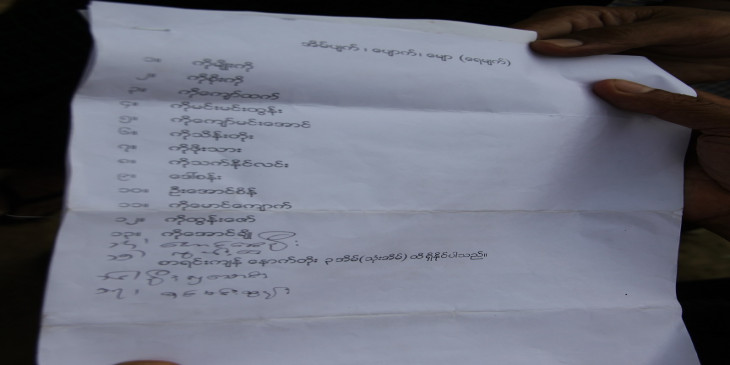 အိမ်ပျက် ၊ ပျောက် ၊ မျော (ရေမျက်)
၁။ ကိုမျိုးကို
၂။ ကိုစိုးကို
၃။ ကိုကျော်ထက်
၄။ ကိုမင်းမင်းထွန်း
၅။ ကိုကျော်မင်းအောင်
၆။ ကိုသိန်းတိုး
၇။ ကိုဖိုးသား
၈။ ကိုသက်နိုင်လင်း
၉။ ဒေါ်စန်း
၁၀။ ဦးအောင်စိန်
၁၁။ ကိုမောင်ကျောက်
၁၂။ ကိုထွန်းဇော်
၁၃။ ကိုအောင်ချို
၁၄။
၁၅။
စာရင်းကျန် နောက်တိုး ၃ အိမ်(သုံးအိမ်) ထိ ရှိနိုင်ပါသည်။